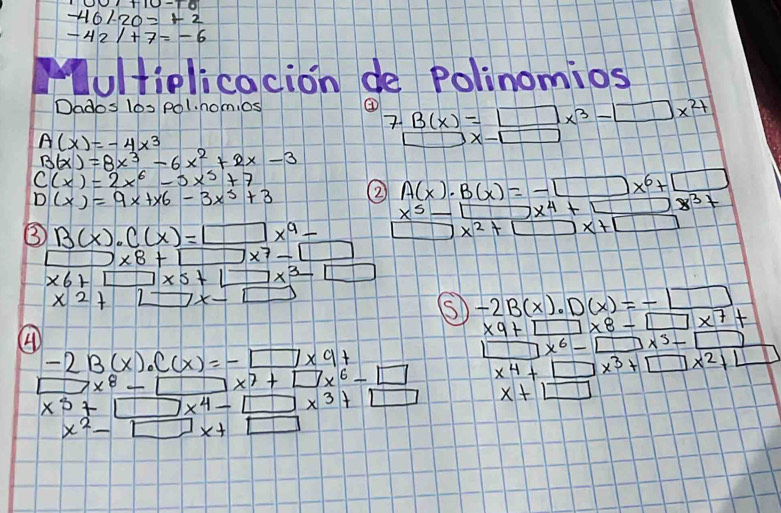 -46/-20=+2
-42/+7=-6
Multiplicación de Polinomios
Dados los polinomios
A(x)=-4x³
B(x)=8x³-6x²+2x-3
C(x)=2x⁶-5x⁵+7
D(x)=9x+x6-3x⁵+3
① 7.B(x)=□x³-□x²+
□x-□
② A(x).B(x)=-□x⁶+□
x⁵-□x⁴+□x³+
□x²+□x+□
③ B(x).C(x)=□x⁹-
□x8+□x⁷-□
x6+□x5+□x³-□
x²+□x-□
④
-2B(x).C(x)=-□x9+
□x⁸-□x⁷+□x⁶-□
x⁵+□x⁴-□x³+□
x²-□x+□
⑤ -2B(x).D(x)=-□
x9+□x8-□x⁷+
□x⁶-□x⁵-□
x⁴+□x³+□x²+□
x+□